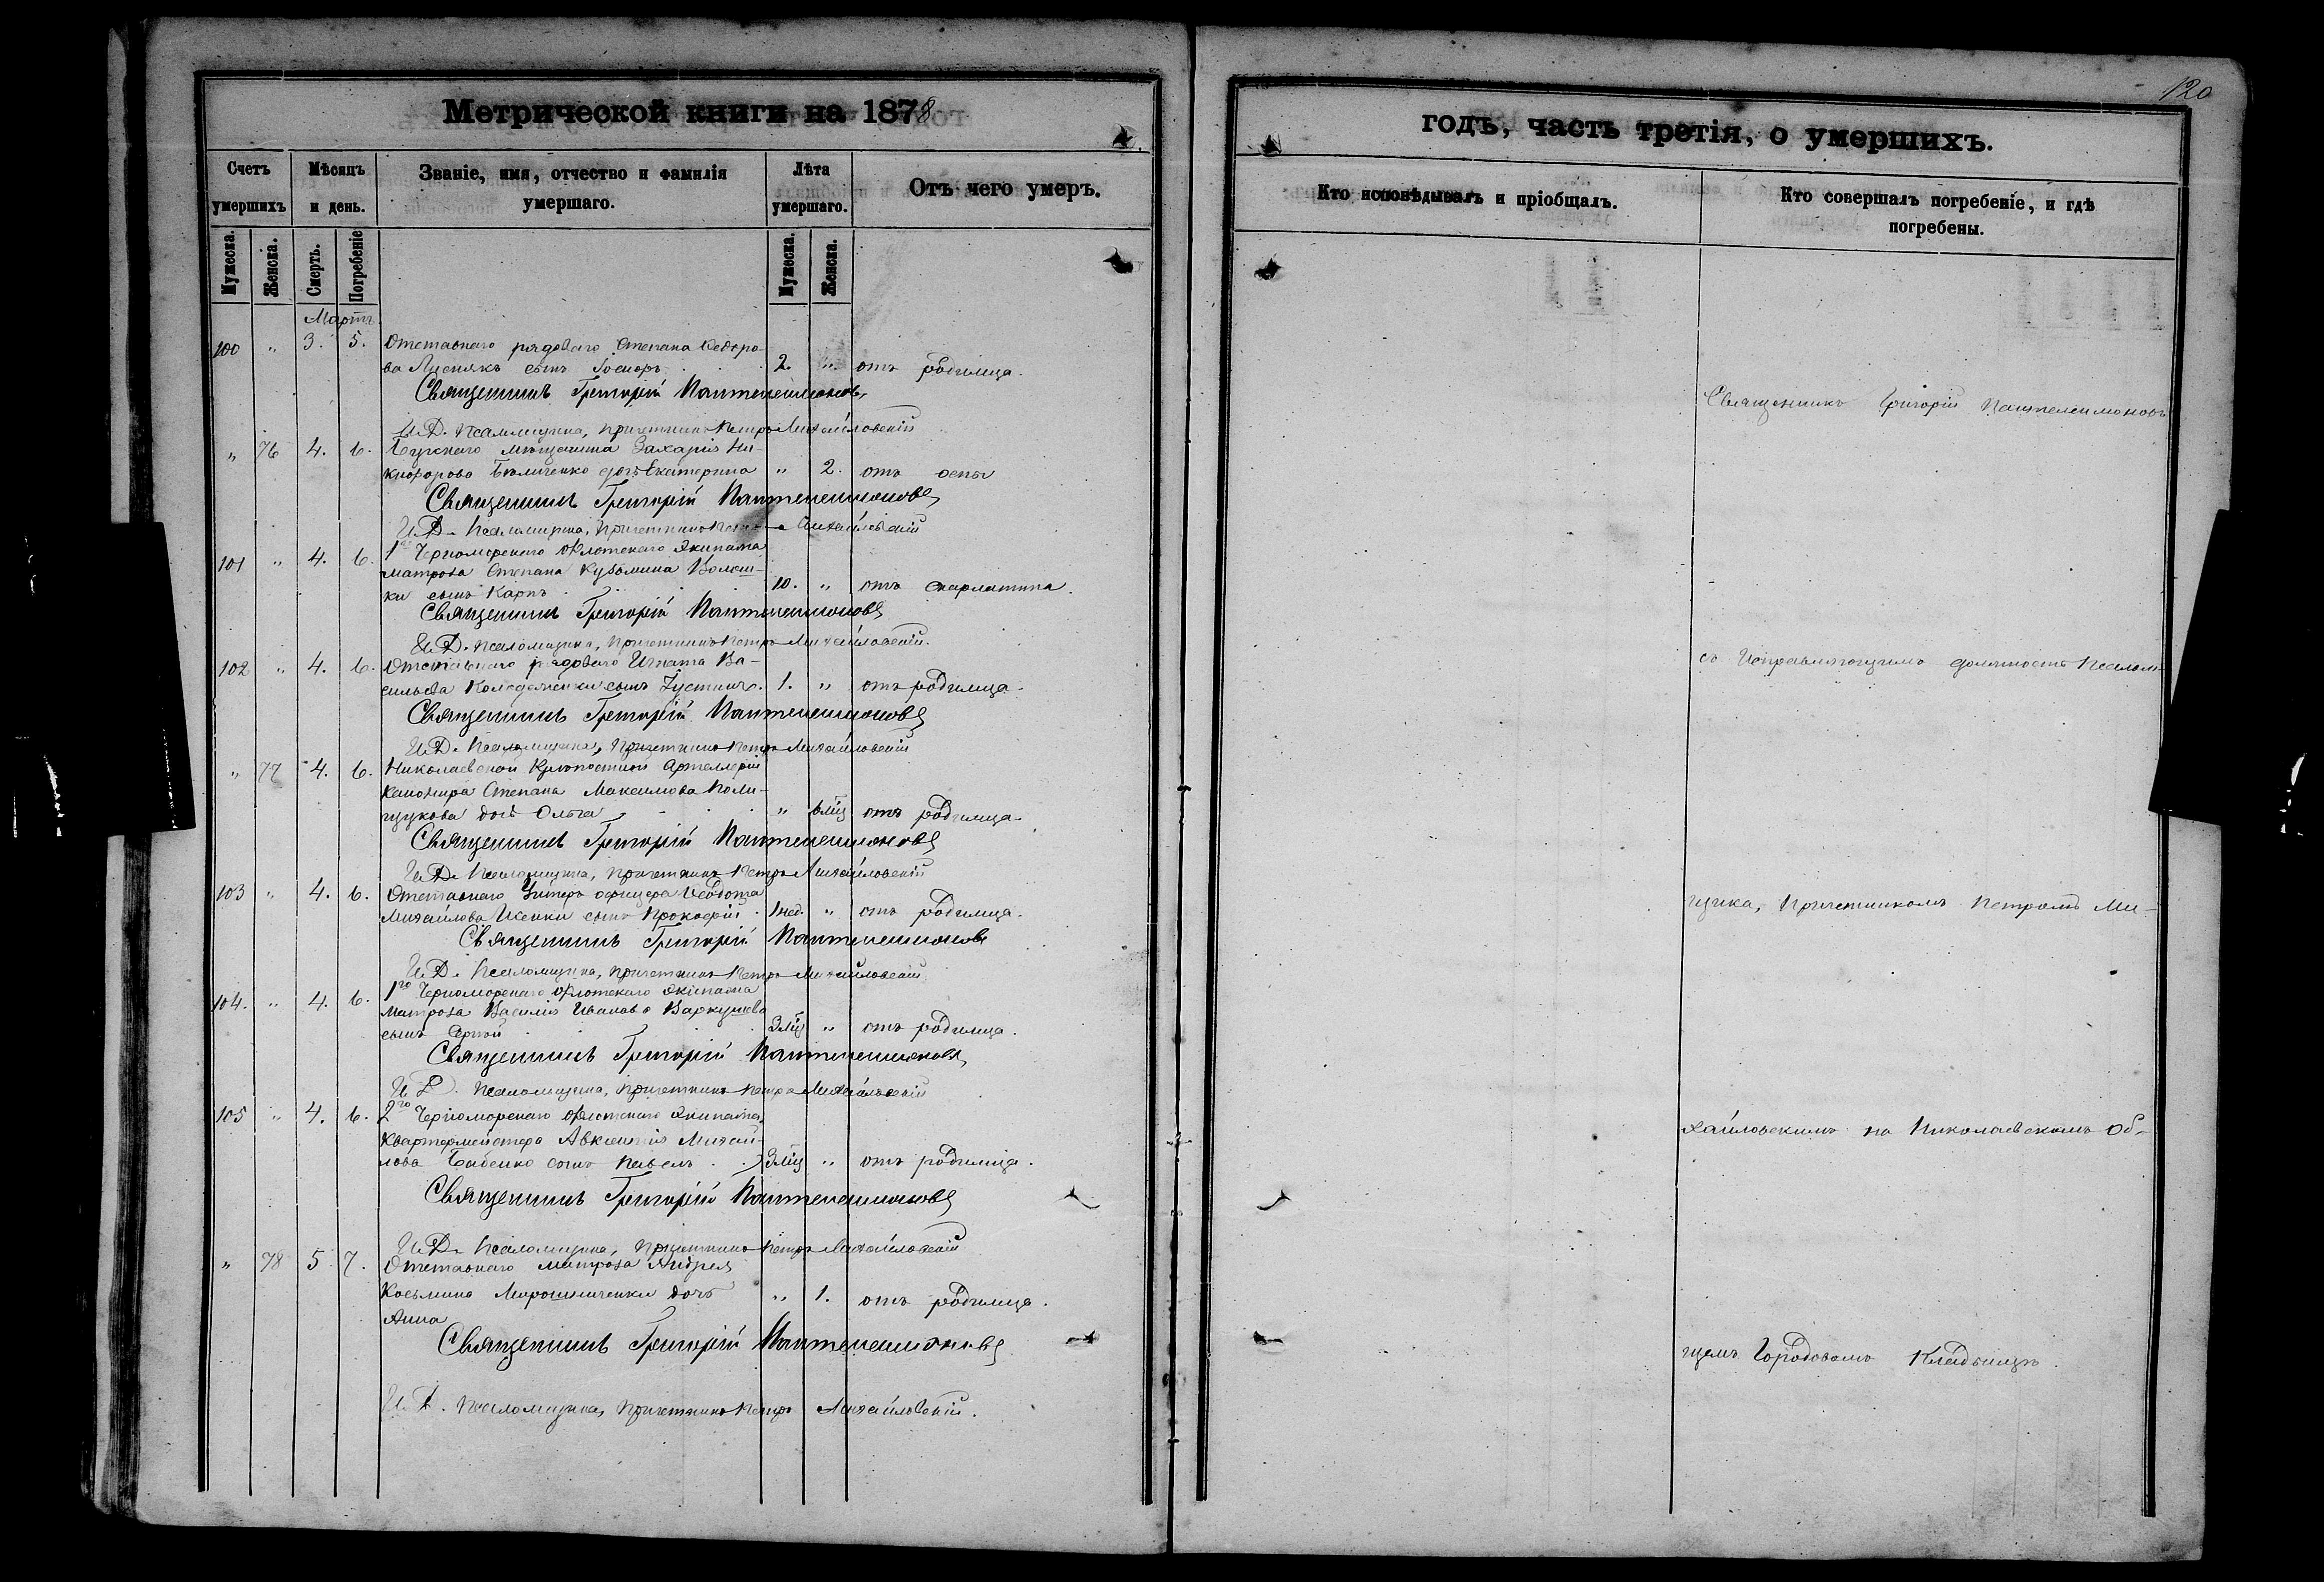 120
Метрической книги на 1878
годъ, часть третія, о умершихъ.
Счетъ умершихъ
Мѣсяцъ и день.
Званіе, имя, отчество и фамилія умершаго.
Лѣта умершаго.
Отъ чего умеръ.
Кто исповѣдывалъ и пріобщалъ.
Кто совершалъ погребеніе, и гдѣ погребены.
Мужеска. Женска. Смерть. Погребеніе Мужеска. Женска.
Мартъ
100 " 3. 5. Отставнаго рядоваго Степана Ѳедоро-
ва сынъ 2. " отъ родимца.
Священникъ Григорій Пантелеимоновъ
И. Д. Псаломщика, Причетникъ Петръ Михайловскій
" 76 4. 6. мѣщанина Захарія Ни-
дочь Екатерина " 2. отъ оспы
Священникъ Григорій Пантелеимоновъ
И. Д. Псаломщика, Причетникъ Петръ Михайловскій
101 " 4. 6. 1го Черноморскаго Флотскаго Экипажа
матроса Степана Кузьмина Волош-
ки сынъ Карпъ 10. " отъ скарлатина.
Священникъ Григорій Пантелеимоновъ
И. Д. Псаломщика, Причетникъ Петръ Михайловскій.
102 " 4. 6. Отставнаго рядоваго Игната Ва-
сильева сынъ Іустинъ. 1. " отъ родимца.
Священникъ Григорій Пантелеимоновъ
И. Д. Псаломщика, Причетникъ Петръ Михайловскій
" 77 4. 6. Николаевской Крѣпостной Артиллеріи
канонира Степана Максимова Поли-
щукова дочь Ольга " отъ родимца.
Священникъ Григорій Пантелеимоновъ
И. Д. Псаломщика, Причетникъ Петръ Михайловскій
103 " 4. 6. Отставнаго Унтеръ офицера
Михайлова сынъ Прокофій 1 нед. " отъ родимца.
Священникъ Григорій Пантелеимоновъ
И. Д. Псаломщика, Причетникъ Петръ Михайловскій
104. " 4. 6. 1го Черноморскаго Флотскаго Экипажа
матроса Василія Иванова
сынъ 3 мѣц " отъ родимца.
Священникъ Григорій Пантелеимоновъ
И. Д. Псаломщика, Причетникъ Петръ Михайловскій
105 " 4. 6. 2го Черноморскаго Флотскаго Экипажа,
Квартермейстера Авксентія Михай-
лова сынъ Павелъ 3 мѣц " отъ родимца.
Священникъ Григорій Пантелеимоновъ
И. Д. Псаломщика, Причетникъ Петръ Михайловскій
" 78 5 7. Отставнаго матроса Андрея
Косьмина Мирошниченки дочь " 1. отъ родимца.
Анна
Священникъ Григорій Пантелеимоновъ
И. Д. Псаломщика, Причетникъ Петръ Михайловскій.
Священникъ Григорій Пантелеимоновъ
съ Исправляющимъ должность Псалом-
щика, Причетникомъ Петромъ Ми-
хайловскимъ на Николаевскомъ Об-
щемъ Городовомъ Кладбищѣ.